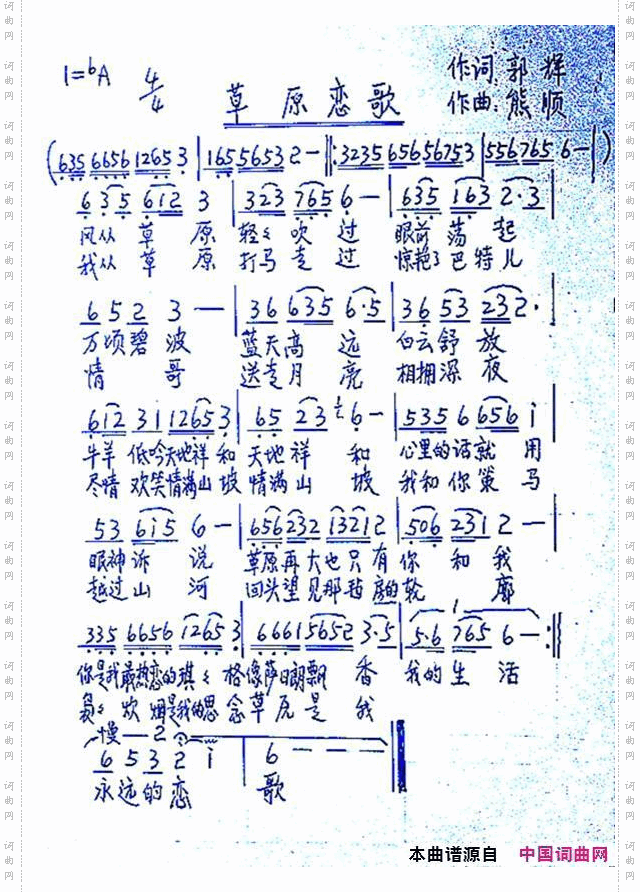 1=bA 4/4 草原恋歌 作词:郭辉
作曲:熊顺
(635 6656 1265 3 | 165 5653 2 — ‖: 3235 656567 53 | 556765 6 — | )
6 35 612 3 | 323 765 6 — | 635 163 2·3 |
风从草原 轻々吹过 眼前荡起
我从草原 打马走过 惊艳了巴特儿
652 3 — — | 36 635 6·5 | 36 53 232· |
万顷碧波 蓝天高远 白云舒放
情哥 送走月亮 相拥深夜
612 31 1265 3 | 65 23 6 — | 535 6 656 i |
牛羊低吟天地祥和 天地祥和 心里的话就用
尽情欢笑情满山坡 情满山坡 我和你策马
53 6i5 6 — | 656232 13212 | 506 231 2 — |
眼神诉说 草原再大也只有你和我
越过山河 回头望见那毡房的轮廓
335 6656 1265 3 | 6661 5652 3·5 | 5·6 765 6 — :‖
你是我最热恋的琪々格像萨日朗飘香 我的生活
袅々炊烟是我的思念草原是我
慢 — 2
6532 i | 6 — — —
永远的恋 歌
本曲谱源自 中国词曲网
词曲网